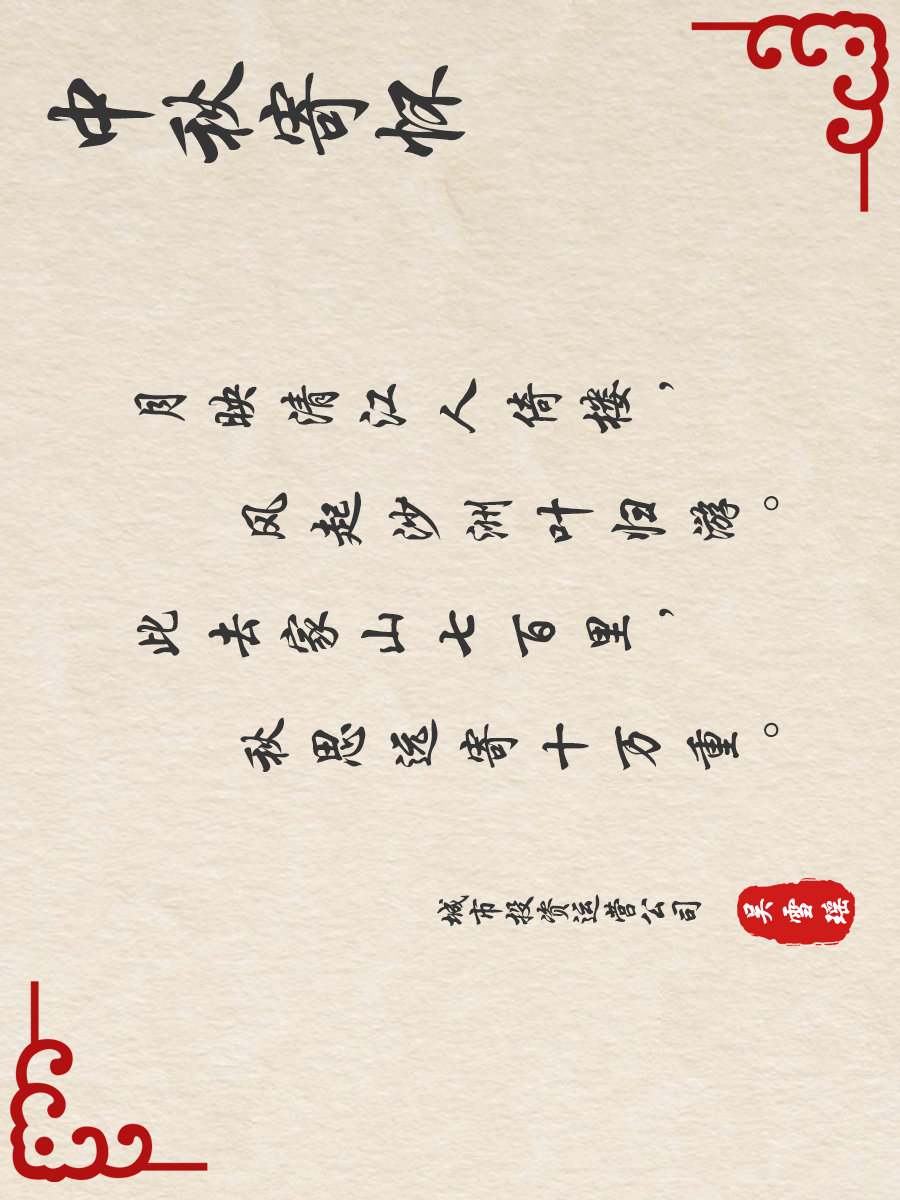 中秋寄怀
月映清江人倚楼，
风起沙洲叶归游。
此去家山七百里，
秋思远寄十万重。
城市投资运营公司
吴雪瑶